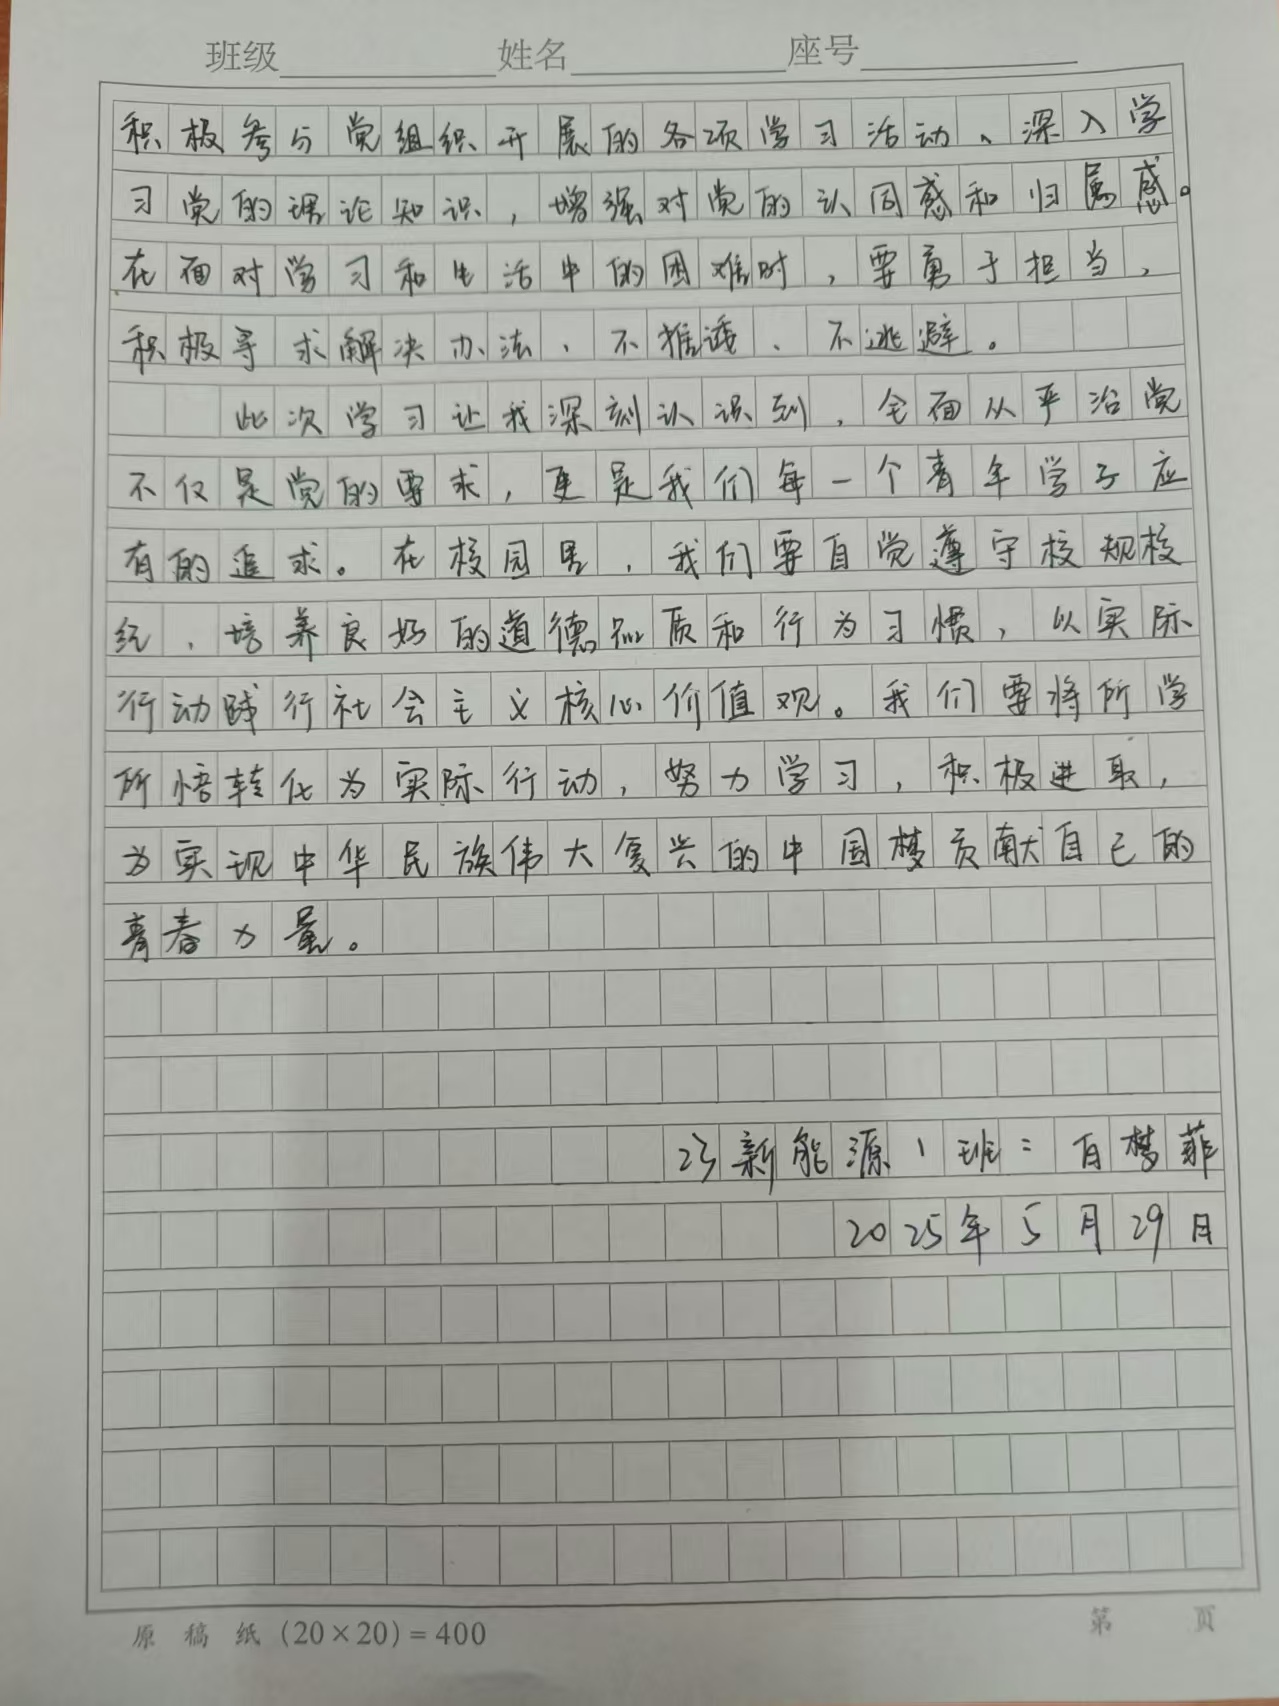 班级 姓名 座号
积极参与党组织开展的各项学习活动、深入学
习党的理论知识，增强对党的认同感和归属感。
在面对学习和生活中的困难时，要勇于担当，
积极寻求解决办法、不推诿、不逃避。
此次学习让我深刻认识到，全面从严治党
不仅是党的要求，更是我们每一个青年学子应
有的追求。在校园里，我们要自觉遵守校规校
纪，培养良好的道德品质和行为习惯，以实际
行动践行社会主义核心价值观。我们要将所学
所悟转化为实际行动，努力学习，积极进取，
为实现中华民族伟大复兴的中国梦贡献自己的
青春力量。
23新能源1班：白梦菲
2025年5月29日
原稿纸(20×20)=400 第 页